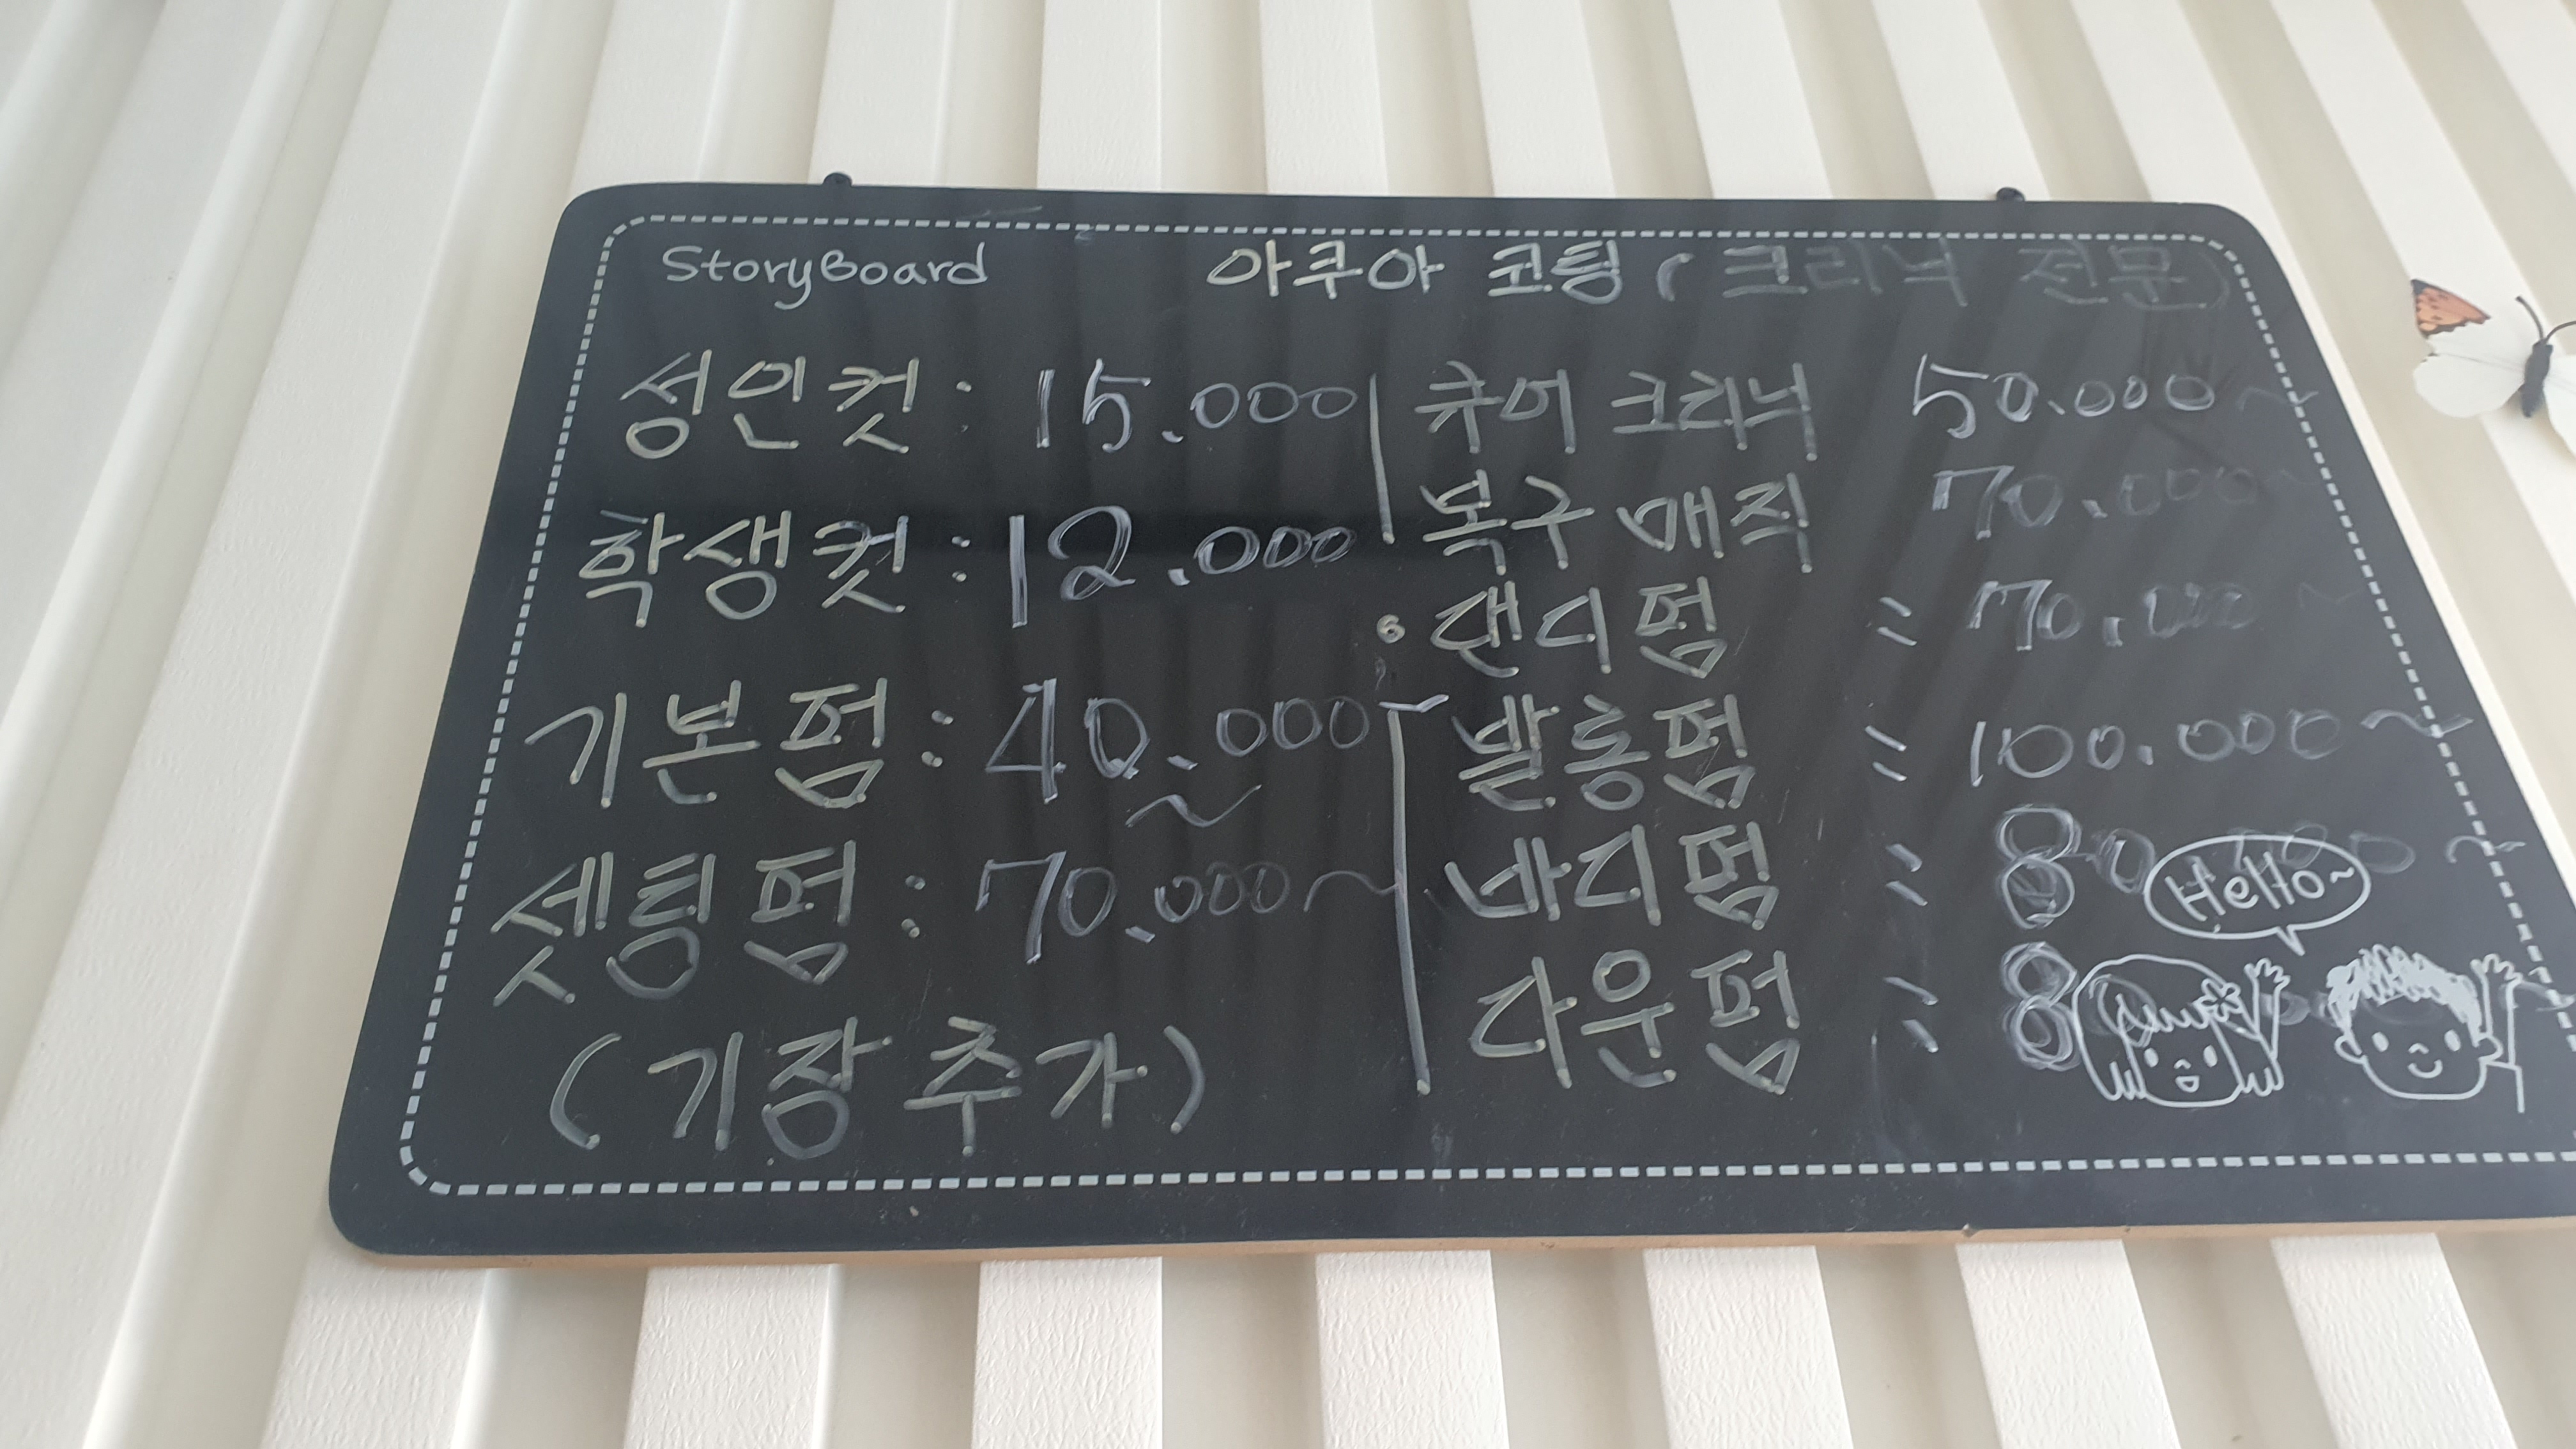 StoryBoard 아쿠아 코팅 (크리닉 전문)
성인컷 : 15.000
학생컷 : 12.000
기본펌 : 40.000
~
셋팅펌 : 70.000~
(기장 추가)
큐어 크리닉 50.000~
복구 매직 70.000~
댄디펌 = 70.000~
발롱펌 = 100.000~
바디펌 =
다운펌 =
Hello~